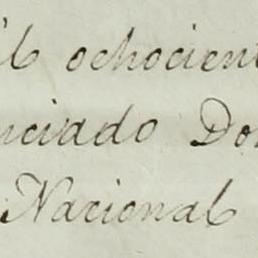 il ochocient
nciado Don
Nacional